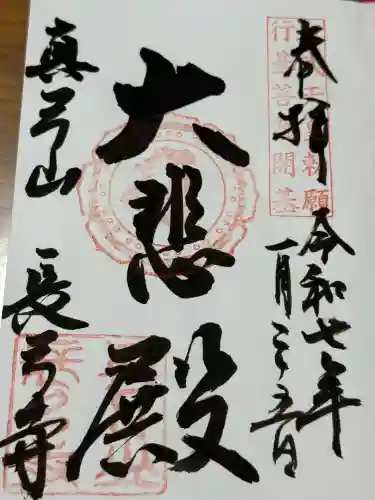 奉拝
令和七年
一月二十五日
大悲殿
真弓山
長弓寺
行基菩薩開基